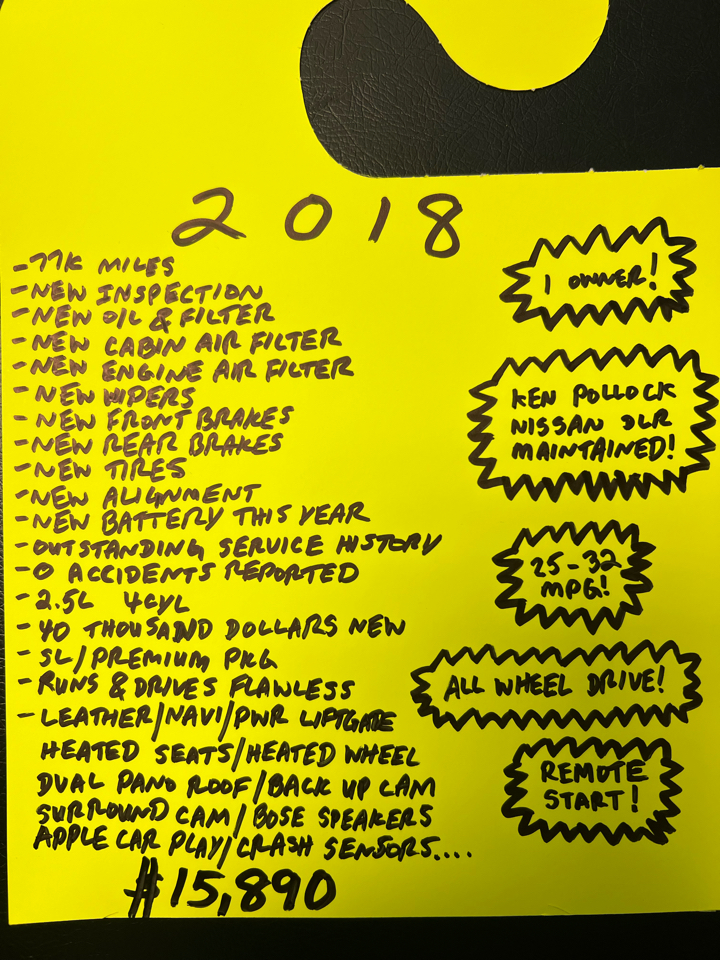 2018
-77K MILES
-NEW INSPECTION
-NEW OIL & FILTER
-NEW CABIN AIR FILTER
-NEW ENGINE AIR FILTER
-NEW WIPERS
-NEW FRONT BRAKES
-NEW REAR BRAKES
-NEW TIRES
-NEW ALIGNMENT
-NEW BATTERY THIS YEAR
-OUTSTANDING SERVICE HISTORY
-0 ACCIDENTS REPORTED
-2.5L 4CYL
-40 THOUSAND DOLLARS NEW
-SL/PREMIUM PKG
-RUNS & DRIVES FLAWLESS
-LEATHER/NAVI/PWR LIFTGATE
HEATED SEATS/HEATED WHEEL
DUAL PANO ROOF/BACK UP CAM
SURROUND CAM/BOSE SPEAKERS
APPLE CAR PLAY/CRASH SENSORS....
$15,890
1 OWNER!
KEN POLLOCK
NISSAN DLR
MAINTAINED!
25-32
MPG!
ALL WHEEL DRIVE!
REMOTE
START!